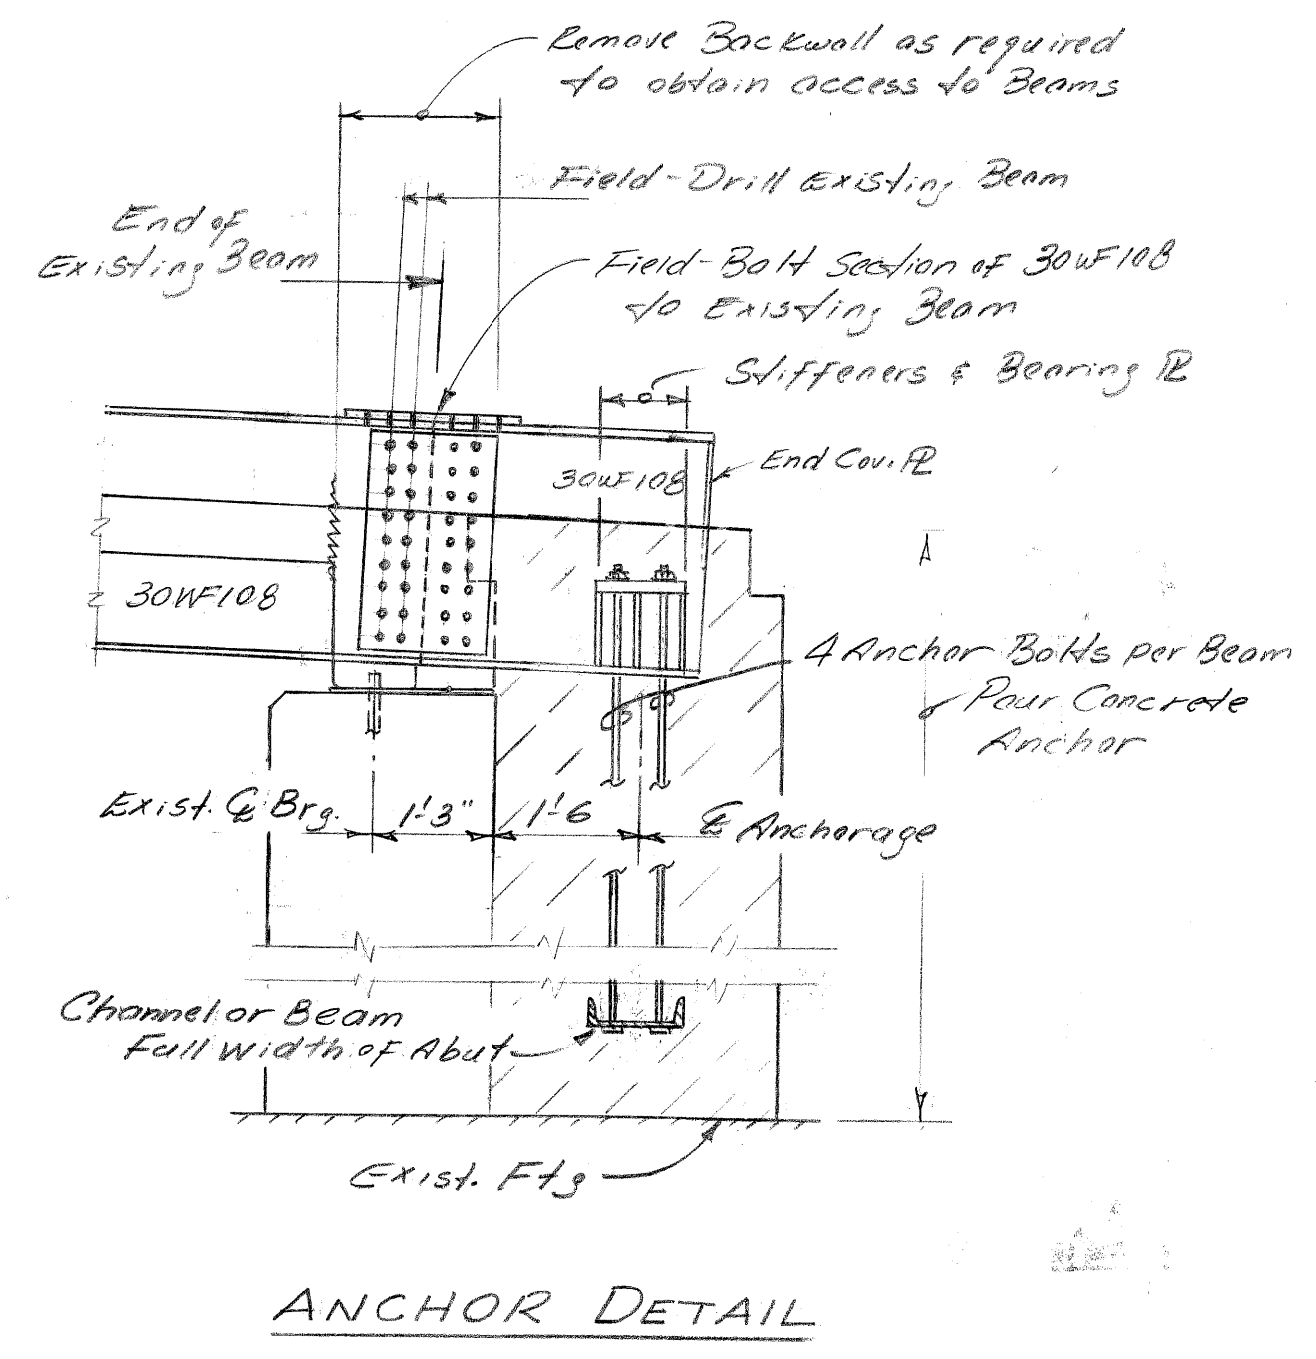 Remove Backwall as required
to obtain access to Beams
Field-Drill Existing Beam
End of
Existing Beam
Field-Bolt Section of 30WF108
to Existing Beam
Stiffeners & Bearing PL
End Cov. PL
30WF108
30WF108
4 Anchor Bolts per Beam
Pour Concrete
Anchor
Exist. CL Brg.
1'-3"
1'-6
CL Anchorage
Channel or Beam
Full Width of Abut
Exist. Ftg
ANCHOR DETAIL